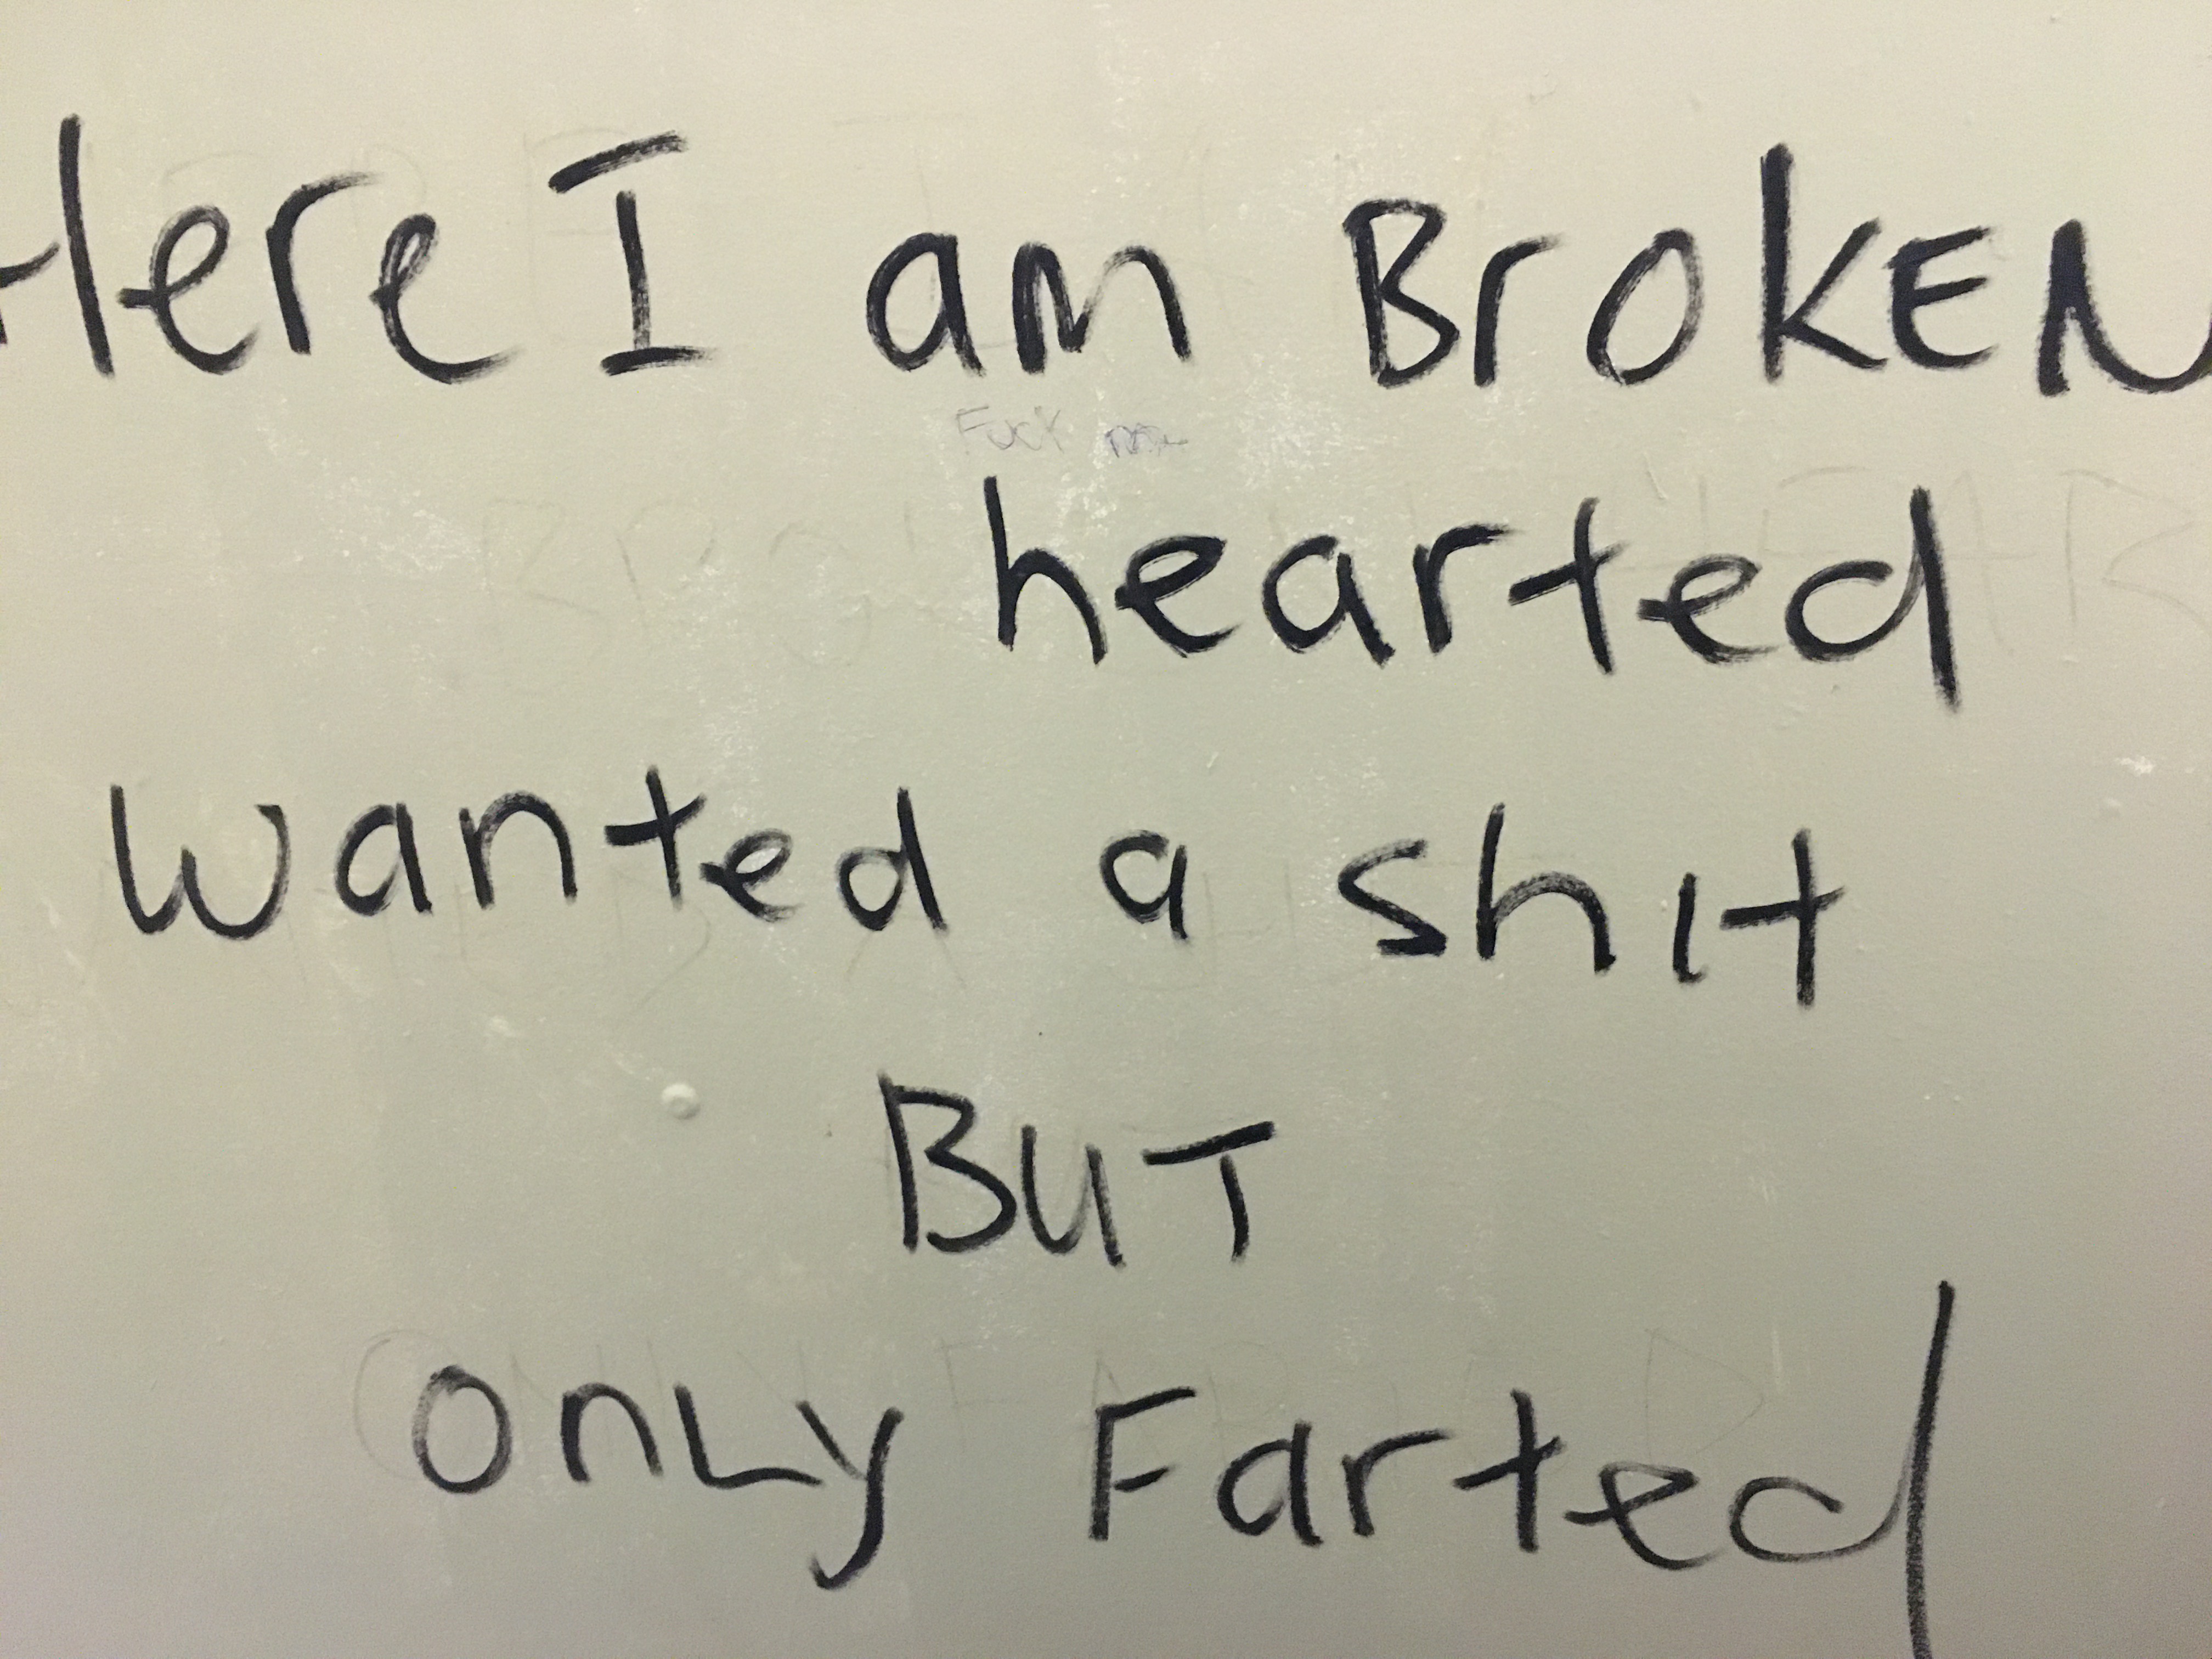 Here I am BroKEN
Fuck
hearted
wanted a shit
BUT
onLy Farted